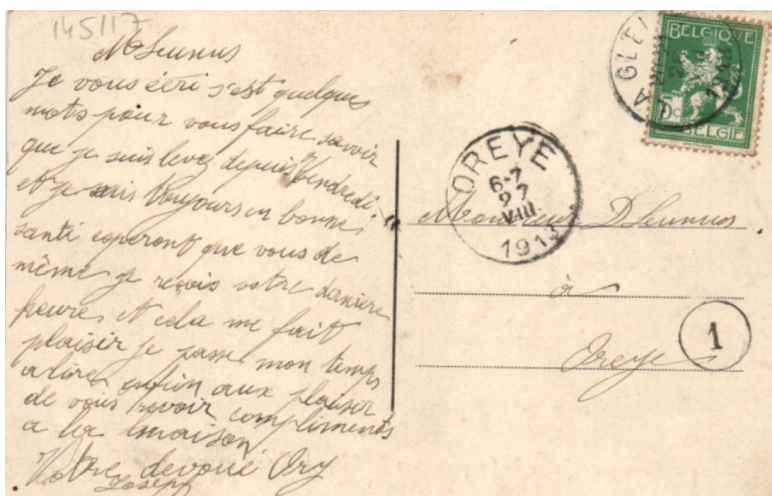 145117
M Leunus
Je vous écri s'est quelques
mots pour vous faire savoir
que je suis levez depuis Vendredi
et je suis toujours en bonne
santé esperont que vous de
même je reçois votre derniere
et cela me fait
plaisir je passe mon temps
a lire enfin aux plaisir
de vous revoir compliments
a la maison
Votre devoué Ory
Joseph
BELGIQUE
5c
BELGIE
LA GLEI
OREYE
6-7
27
VIII
1913
Monsieur
à
Oreye
1